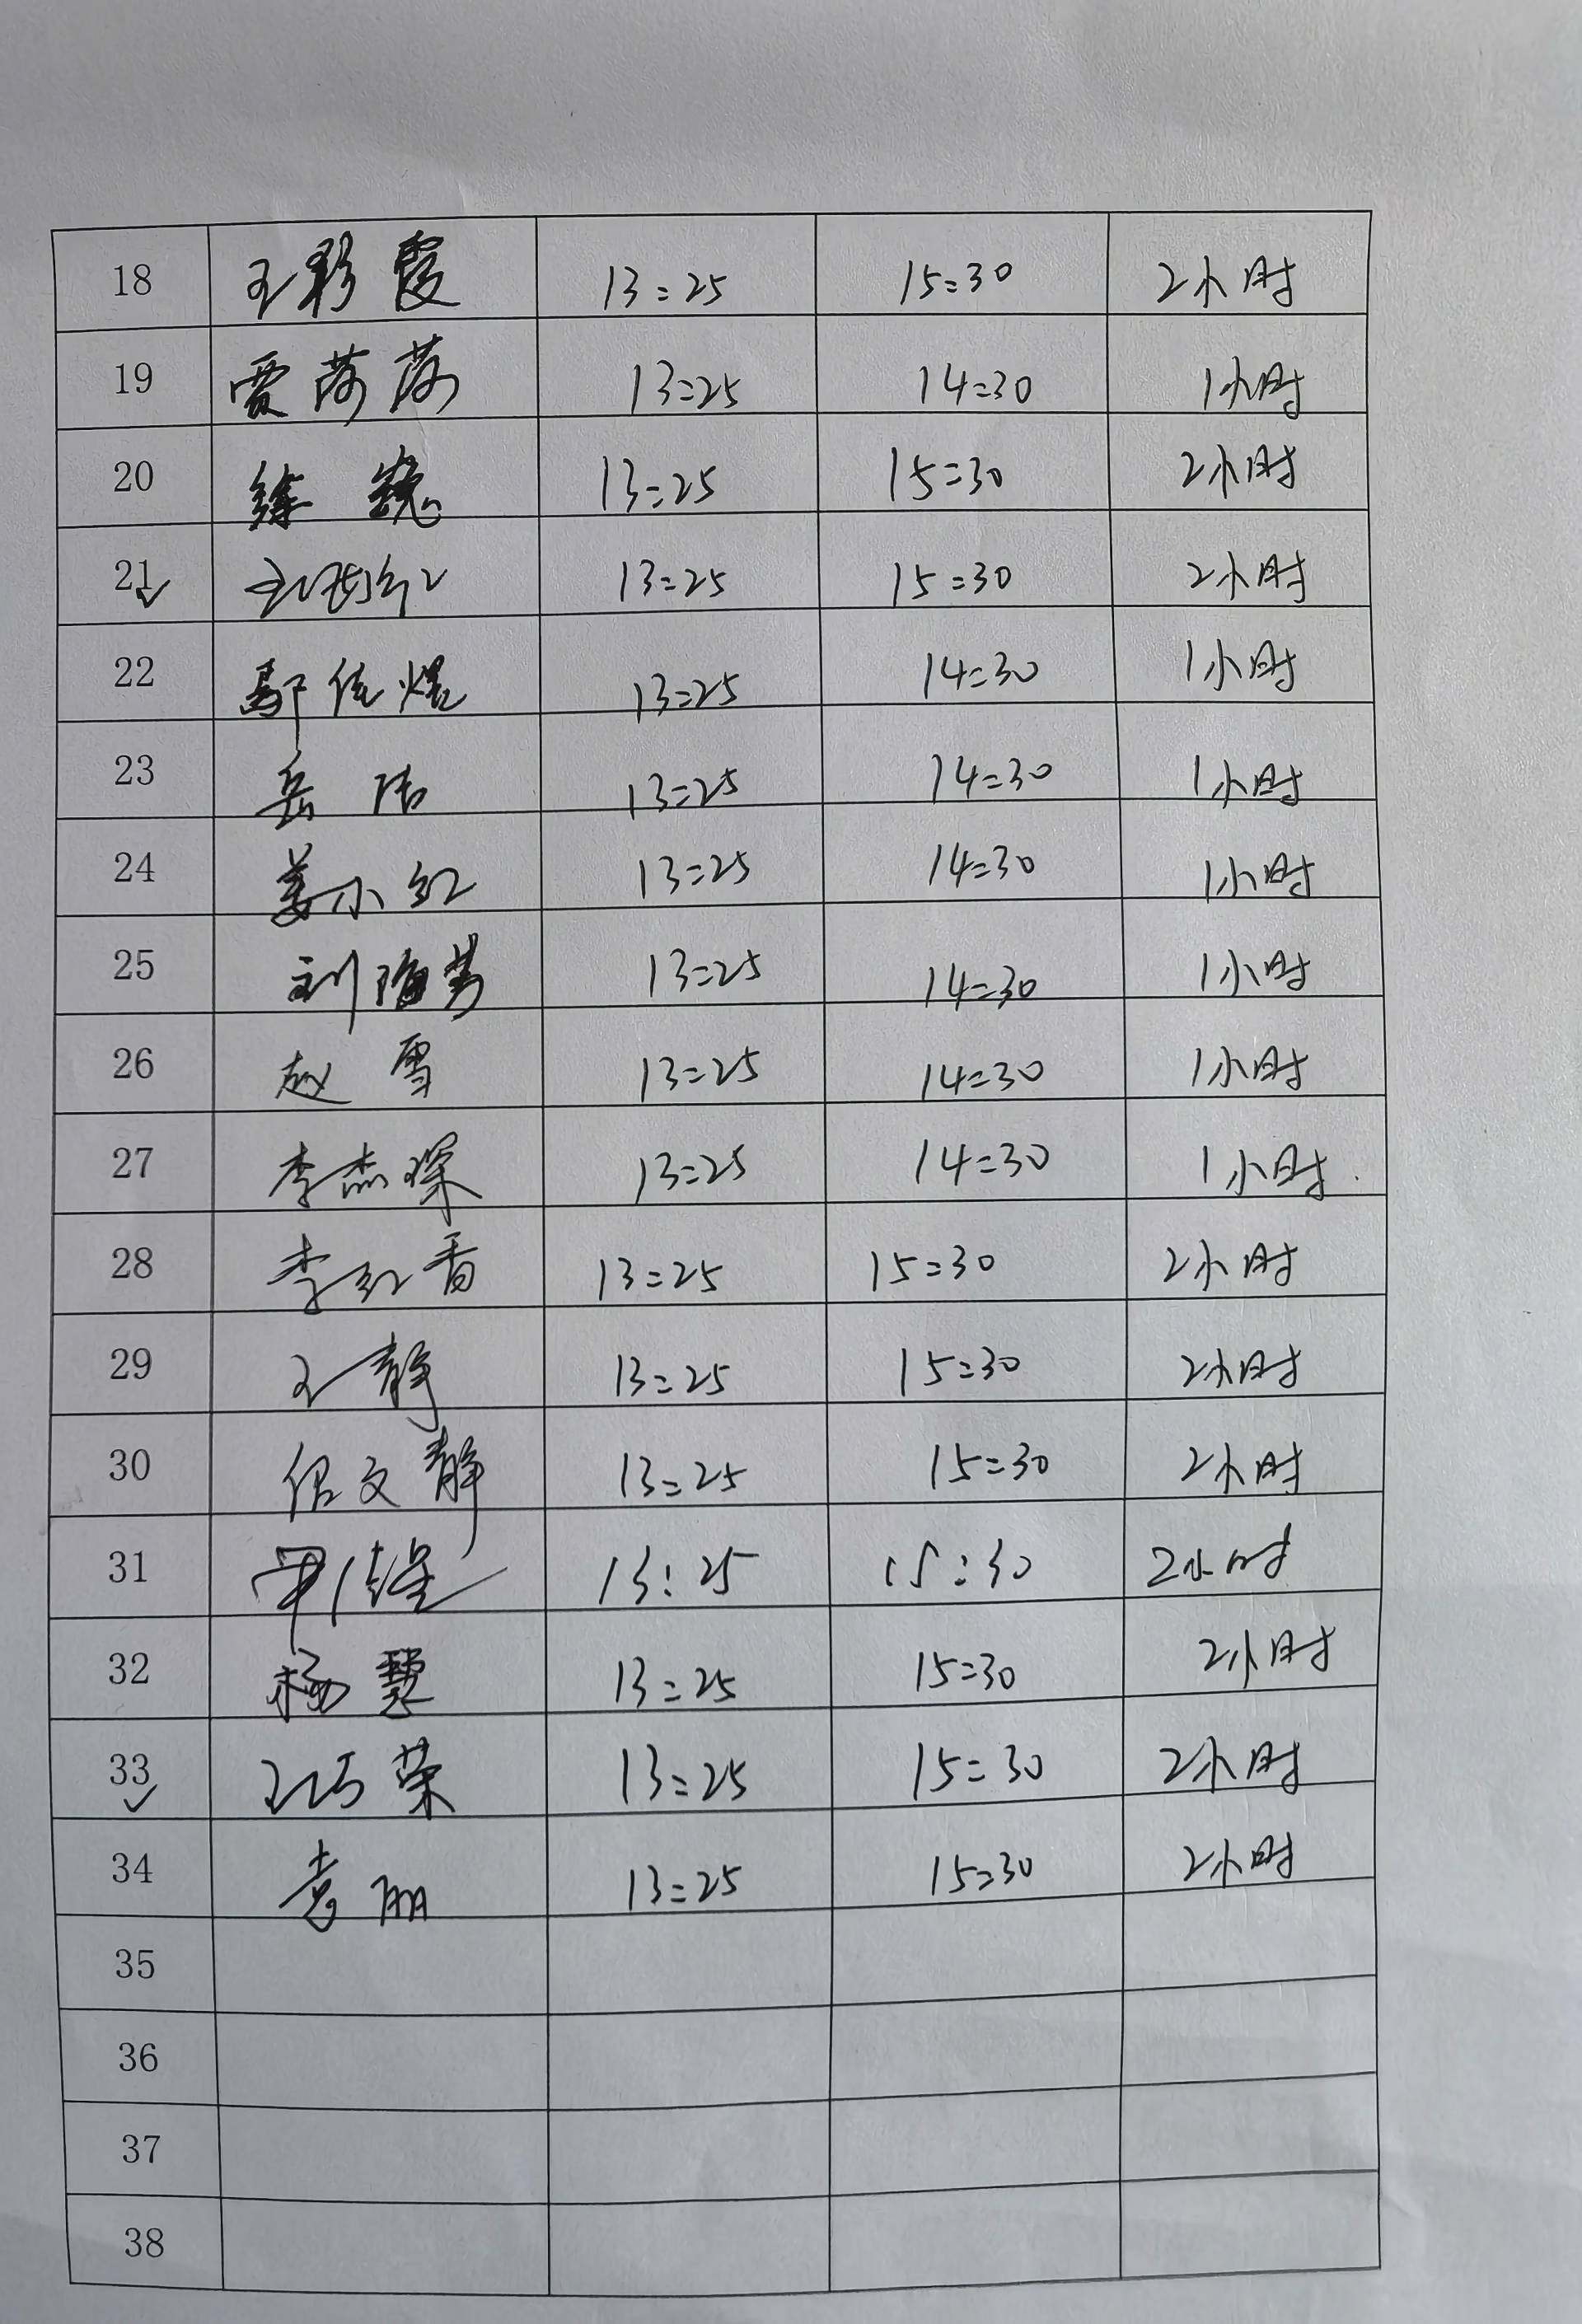 18 王彩霞 13:25 15:30 2小时
19 贾荷荷 13:25 14:30 1小时
20 13:25 15:30 2小时
21 13:25 15:30 2小时
22 13:25 14:30 1小时
23 岳洁 13:25 14:30 1小时
24 姜小红 13:25 14:30 1小时
25 刘海芳 13:25 14:30 1小时
26 赵雪 13:25 14:30 1小时
27 李杰琛 13:25 14:30 1小时
28 李红香 13:25 15:30 2小时
29 王静 13:25 15:30 2小时
30 文静 13:25 15:30 2小时
31 13:25 15:30 2小时
32 杨慧 13:25 15:30 2小时
33 王巧荣 13:25 15:30 2小时
34 袁丽 13:25 15:30 2小时
35
36
37
38